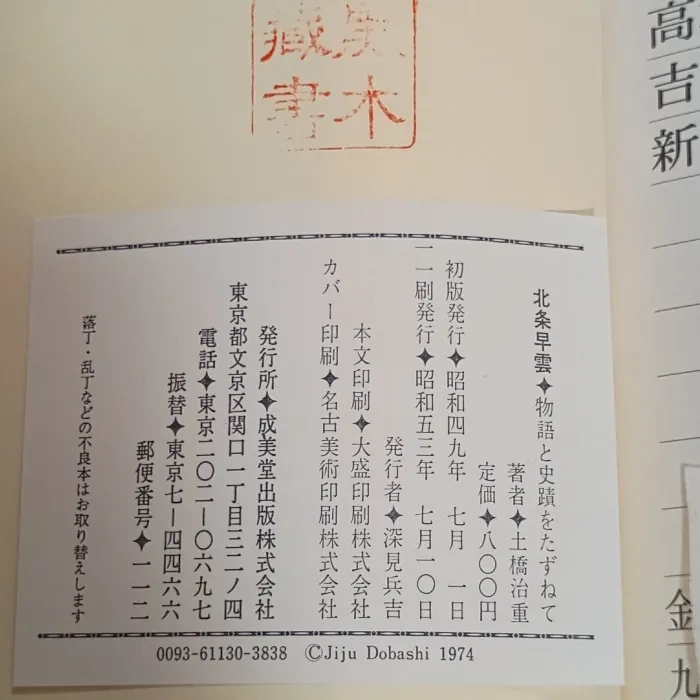 蔵書
木
北条早雲✦物語と史蹟をたずねて
著者✦土橋治重
定価✦八〇〇円
初版発行✦昭和四九年 七月 一日
一一刷発行✦昭和五三年 七月一〇日
発行者✦深見兵吉
本文印刷✦大盛印刷株式会社
カバー印刷✦名古美術印刷株式会社
発行所✦成美堂出版株式会社
東京都文京区関口一丁目三二ノ四
電話✦東京二〇二―〇六九七
振替✦東京七―四四六六
郵便番号✦一一二
落丁・乱丁などの不良本はお取り替えします
0093-61130-3838 ©Jiju Dobashi 1974
高
吉
新
一
金
九